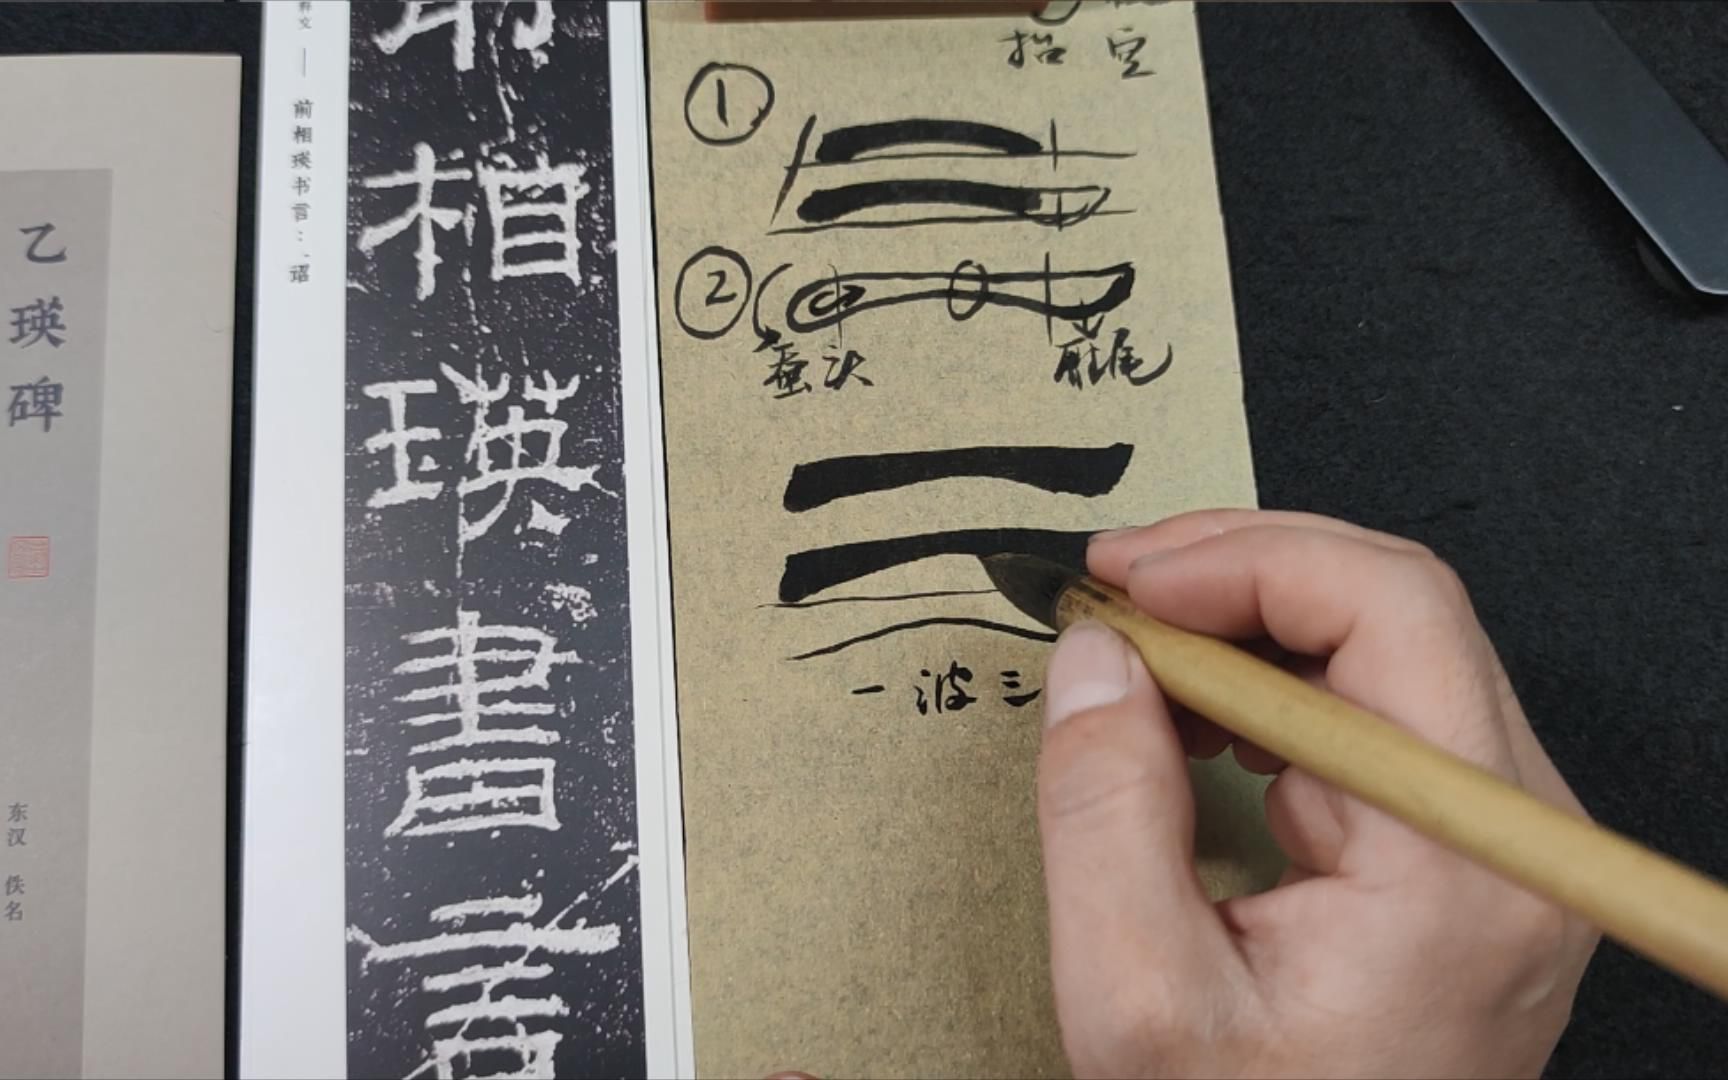 乙瑛碑
东汉 佚名
释文 — 前相瑛书言：、诏
前
相
瑛
書
言
抬 空
①
②
蚕头
雁尾
一波三